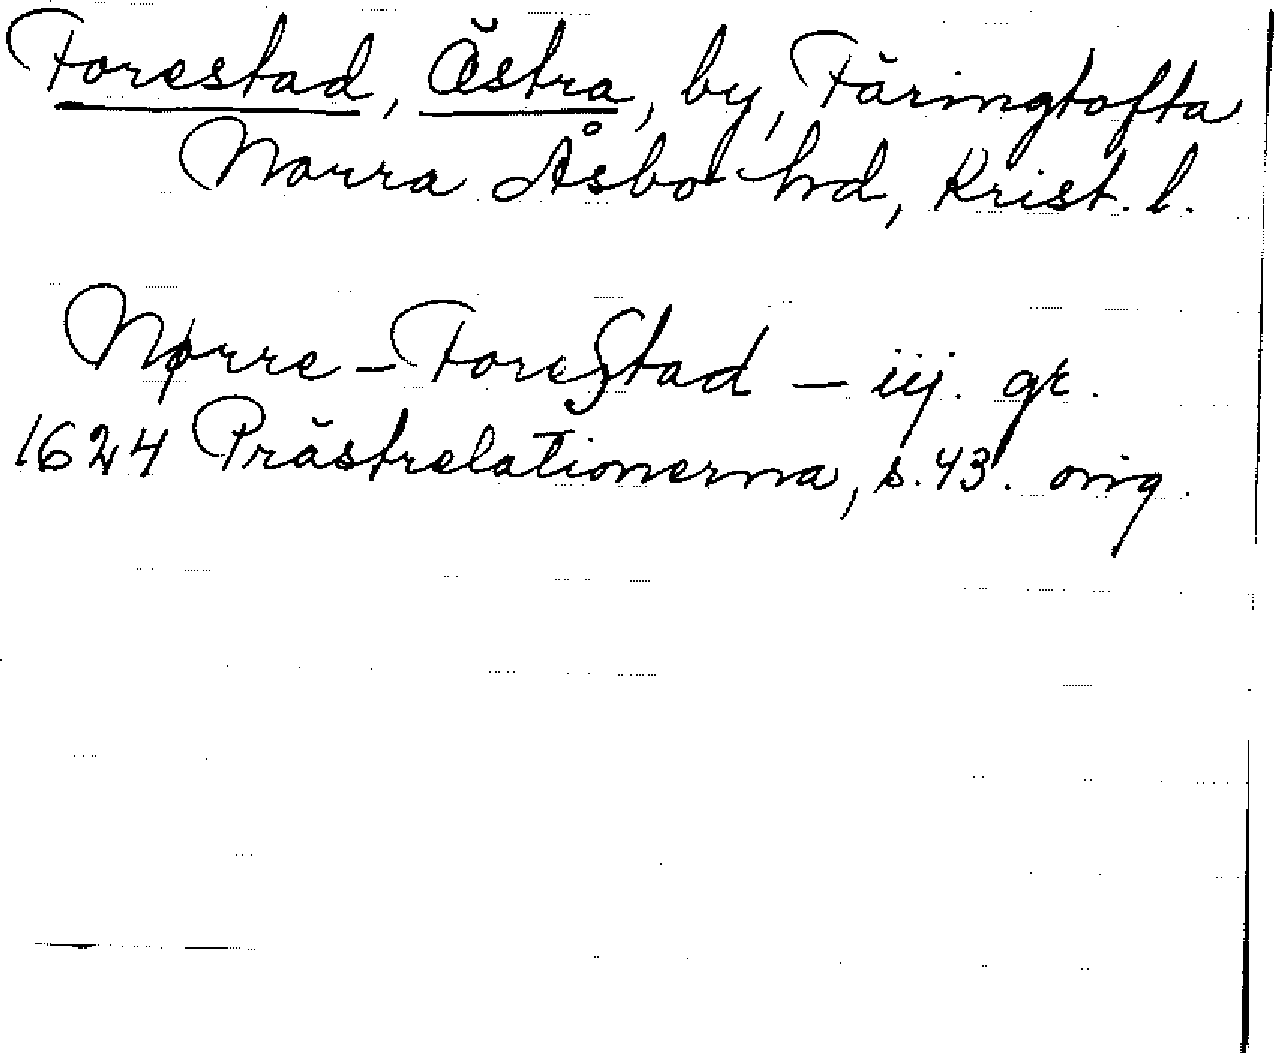 Forestad, Östra, by, Färingtofta
Norra Åsbo hd, Krist. l.
Nørre-Foreſtad — iij. gr.
1624 Prästrelationerna, s. 43. orig.